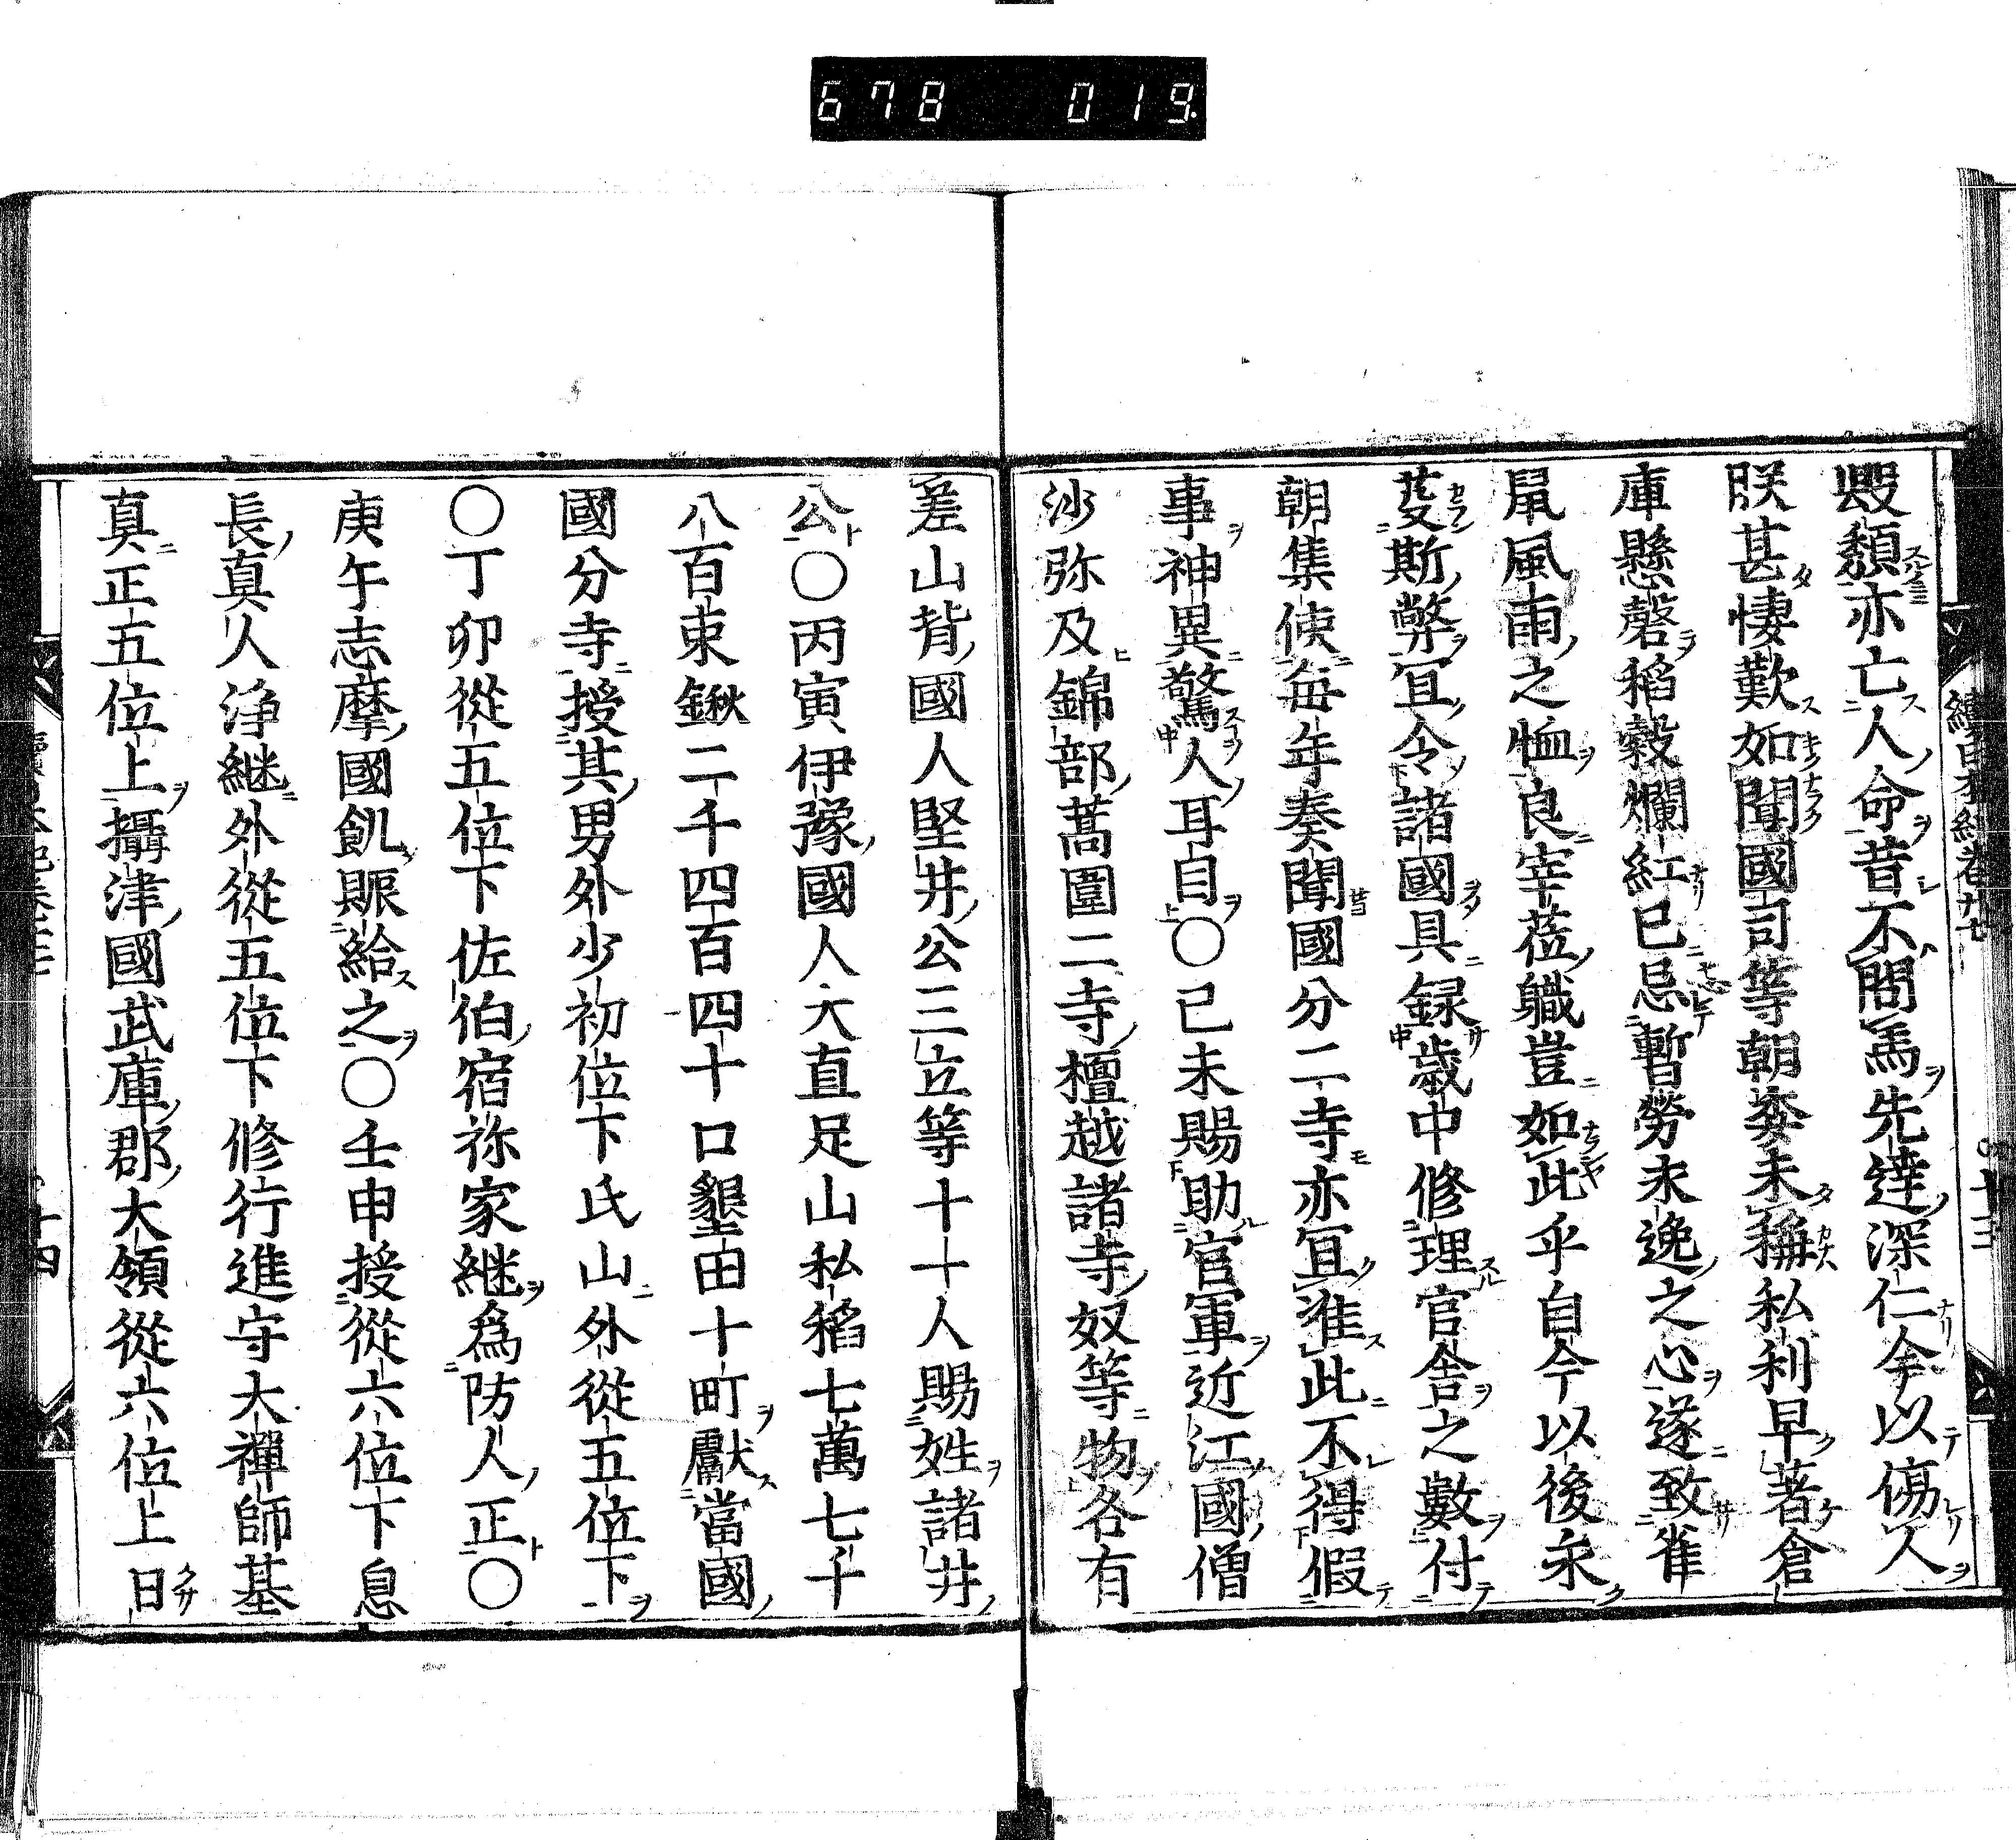 678 019
續日本紀卷廿七
毀頽亦亡人命昔不問馬先達深仁今以傷人
朕甚悽歎如聞國司等朝委未稱私利早著倉
庫懸磬稻穀爛紅已忌暫勞永逸之心遂致雀
鼠風雨之恤良宰莅職豈如此乎自今以後永
革斯弊宜令諸國具録歳中修理官舍之數付
朝集使毎年奏聞國分二寺亦宜准此不得假
事神異驚人耳目○己未賜助官軍近江國僧
沙弥及錦部藁園二寺檀越諸寺奴等物各有
差山背國人堅井公三立等十十人賜姓諸井
公○丙寅伊豫國人大直足山私稻七萬七千
八百束鍬二千四百四十口墾田十町獻當國
國分寺授其男外少初位下氏山外從五位下
○丁卯從五位下佐伯宿祢家継爲防人正○
庚午志摩國飢賑給之○壬申授從六位下息
長真人浄継外從五位下修行進守大禪師基
真正五位上攝津國武庫郡大領從六位上日